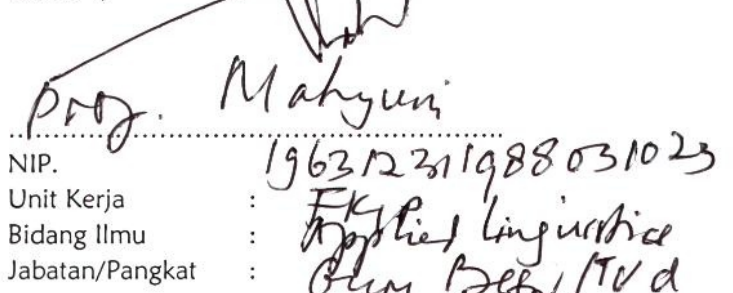 Prof. Mahyuni
NIP. 196312311988031023
Unit Kerja : FKIP
Bidang Ilmu : Applied Linguistics
Jabatan/Pangkat : Guru Besar / IV d